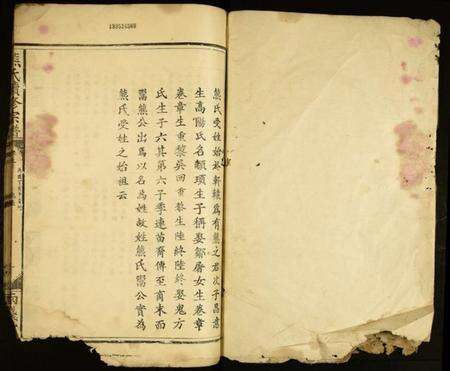 熊氏受姓始於軒轅為有熊之君次子昌意
生高陽氏名顓頊生子稱娶鄒屠女生卷章
卷章生重黎吳回重黎生陸終陸終娶鬼方
氏生子六其第六子季連苗裔傳至商末而
鬻熊公出為以名為姓故姓熊氏鬻公實為
熊氏受姓之始祖云
熊氏續修宗譜